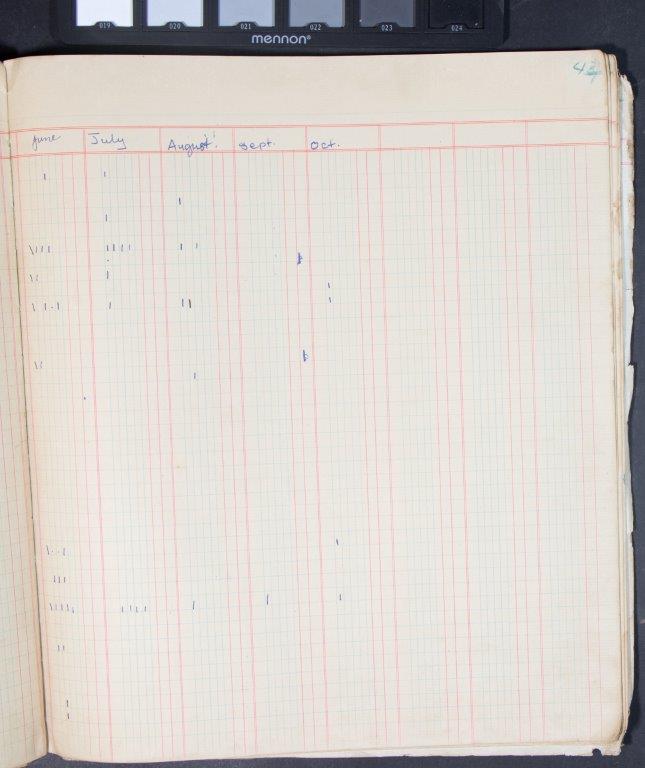 019 020 021 022 023 024
mennon®
June July August. Sept. Oct.